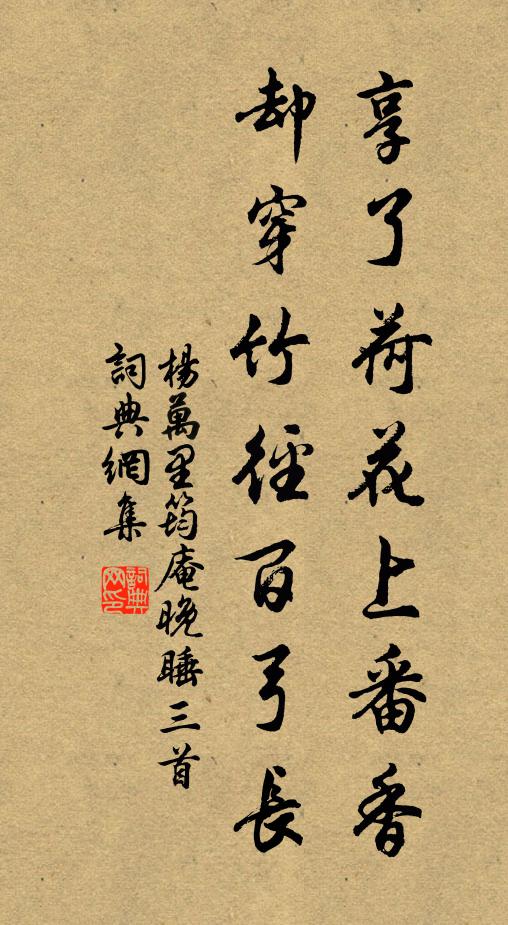 享了荷花上番香
却穿竹徑百弓長
楊萬里筠庵晚睡三首
詞典網集
詞典網印